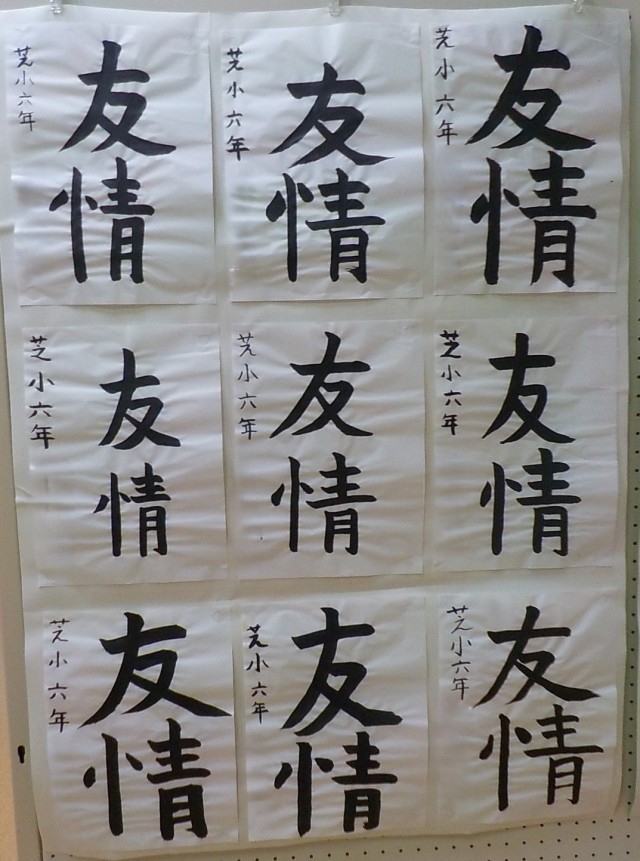 友情
芝小六年
友情
芝小六年
友情
芝小六年
友情
芝小六年
友情
芝小六年
友情
芝小六年
友情
芝小六年
友情
芝小六年
友情
芝小六年